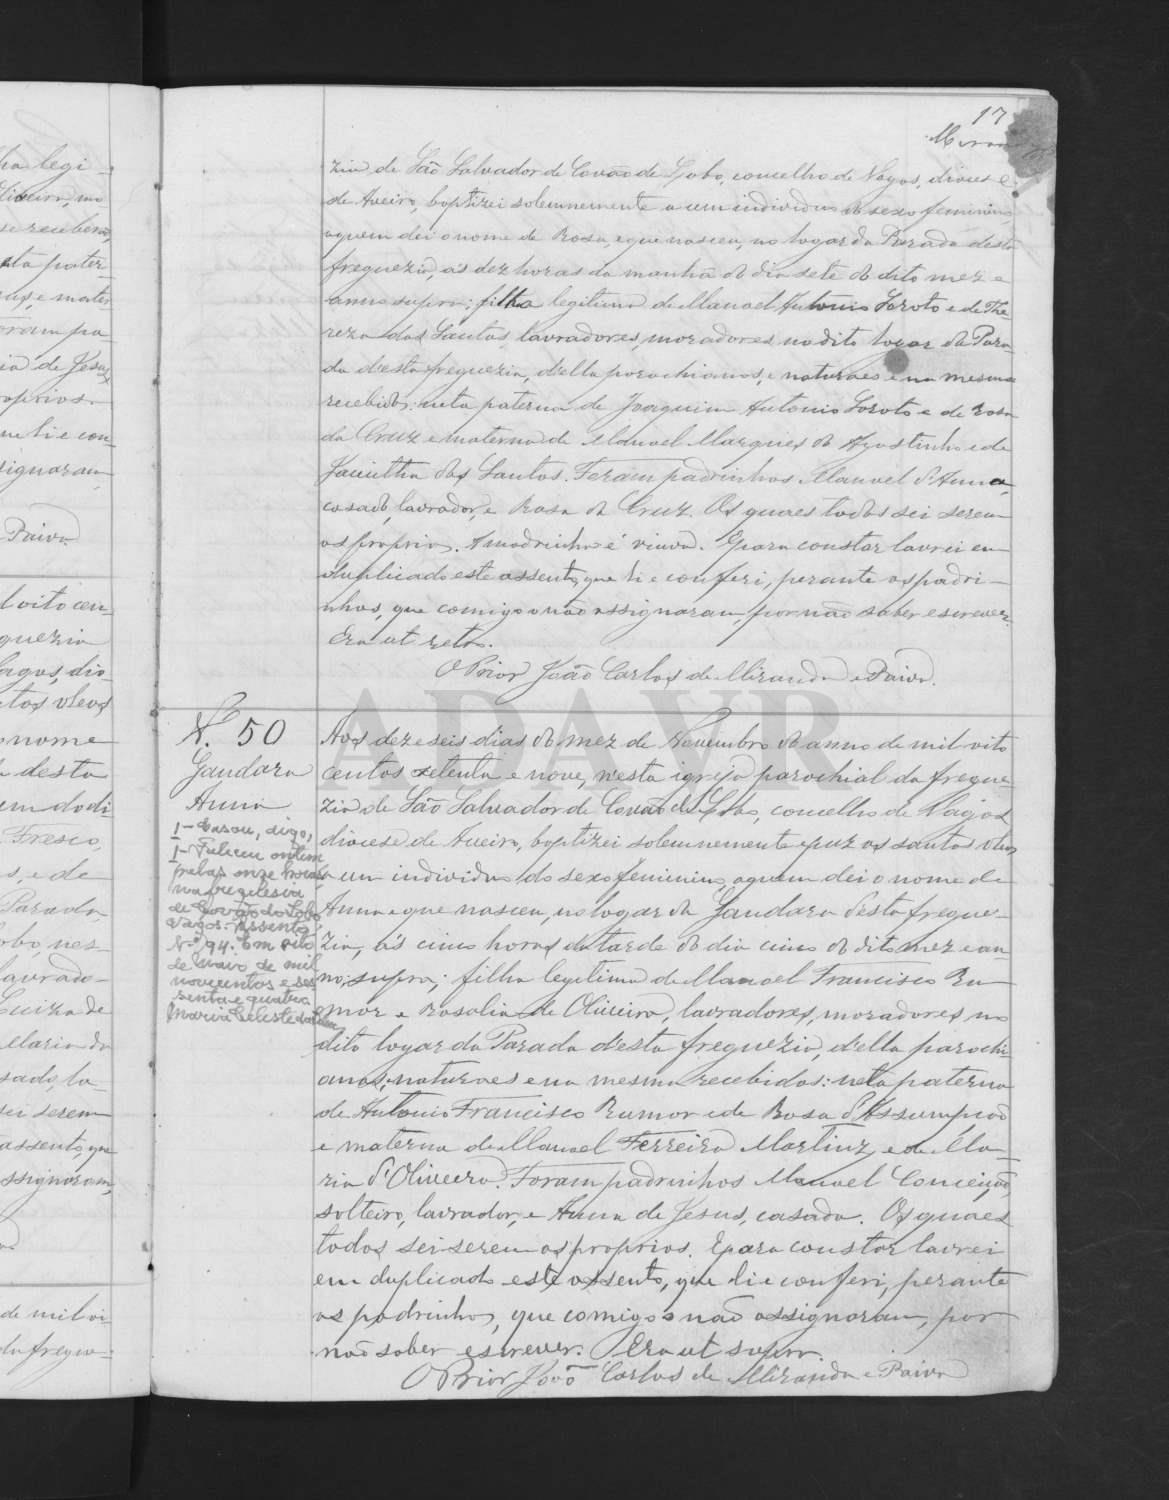 17
Miranda
zia de São Salvador de Covão de Lobo, concelho de Vagos, diocese
de Aveiro, baptizei solemnemente a um individuo do sexo feminino
a quem dei o nome de Rosa, e que nasceu, no logar da Parada desta
freguezia, ás dez horas da manhã do dia sete do dito mez e
anno supra; filha legitima de Manoel Antonio Loroto e de The
reza dos Santos, lavradores, moradores no dito logar da Para-
da d'esta freguezia, d'ella parochianos, e naturaes e na mesma
recebidos: neta paterna de Joaquim Antonio Loroto e de Rosa
da Cruz e materna de Manoel Marques do Agostinho e de
Jacintha dos Santos. Foram padrinhos Manoel d'Anna,
casado, lavrador, e Rosa da Cruz. Os quaes todos sei serem
os proprios. A madrinha é viuva. E para constar lavrei em
duplicado este assento, que li e conferi, perante os padri-
nhos, que comigo o não assignaram, por não saber escrever.
Era ut retro.
O Prior João Carlos de Miranda e Paiva.
N. 50
Gandara
Anna
1 - Casou, digo,
1 - Faleceu ontem
pelas onze horas
na freguesia
de Covão do Lobo,
Vagos. Assento
N.º 94. Em oito
de Maio de mil
novecentos e ses
senta e quatro
Maria Celeste da
Aos dezeseis dias do mez de Novembro do anno de mil oito
centos setenta e nove, n'esta igreja parochial da fregue-
zia de São Salvador de Covão do Lobo, concelho de Vagos
diocese de Aveiro, baptizei solemnemente e puz os santos oleos
a um individuo do sexo feminino, a quem dei o nome de
Anna e que nasceu, no logar da Gandara d'esta fregue-
zia, ás cinco horas da tarde do dia cinco do dito mez e an
no, supra; filha legitima de Manoel Francisco Ru-
mor e Rosalia de Oliveira, lavradores, moradores no
dito logar da Parada d'esta freguezia, d'ella parochi-
anos, naturaes e na mesma recebidos: neta paterna
de Antonio Francisco Rumor e de Rosa d'Assumpção
e materna de Manoel Ferreira Martinz, e de Ma-
ria d'Oliveira. Foram padrinhos Manoel Conceição,
solteiro, lavrador, e Anna de Jesus, casada. Os quaes
todos sei serem os proprios. E para constar lavrei
em duplicado este assento, que li e conferi, perante
os padrinhos, que comigo o não assignaram, por
não saber escrever. Era ut supra.
O Prior João Carlos de Miranda e Paiva
ADAVR